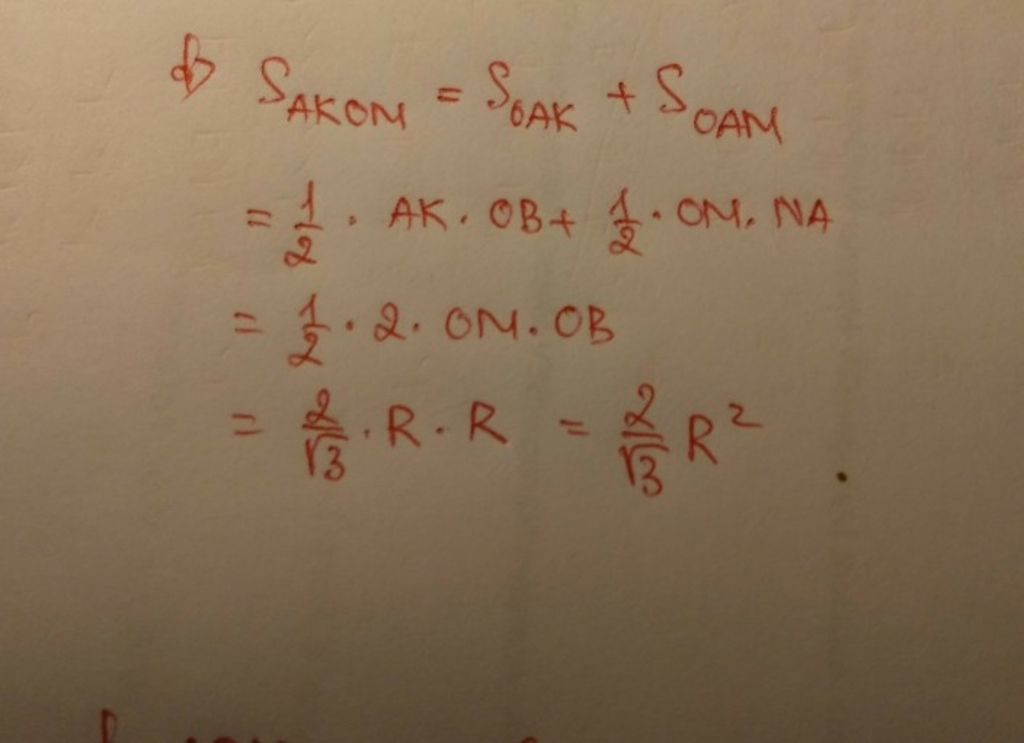 d) S_AKOM = S_OAK + S_OAM
= 1/2 . AK . OB + 1/2 . OM . NA
= 1/2 . 2 . OM . OB
= 2/√3 . R . R = 2/√3 R²